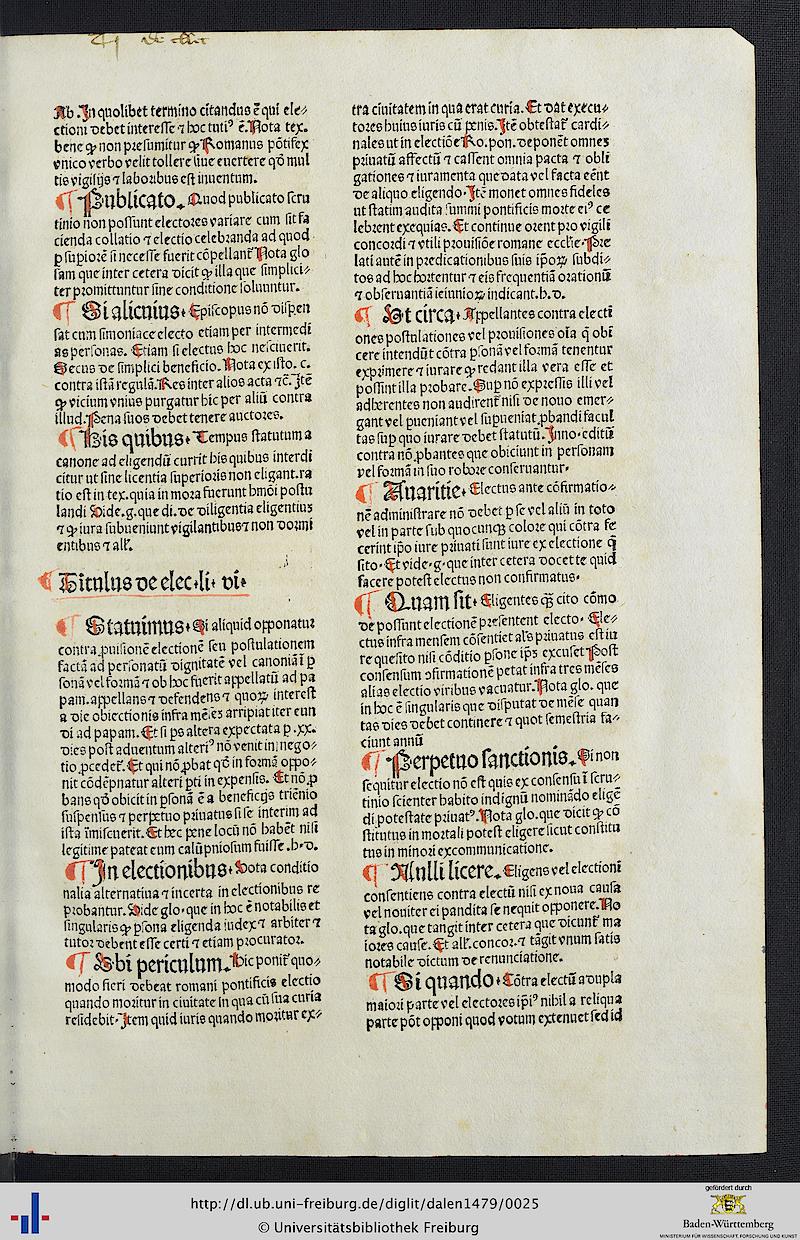 Ab. In quolibet termino citandus ē qui ele⸗
ctioni debet interesse ⁊ hoc tutiꝰ ē. Nota tex.
bene ꝙ non presumitur ꝙ Romanus pōtifex
vnico verbo velit tollere siue euertere qd̄ mul
tis vigilijs ⁊ laboribus est inuentum.
¶ Publicato. Quod publicato scru
tinio non possunt electores variare cum sit fa
cienda collatio ⁊ electio celebranda ad quod
ꝑ supiorē si necesse fuerit cōpellant᷑ Nota glo
sam que inter cetera dicit ꝙ illa que simplici⸗
ter promittuntur sine conditione soluuntur.
¶ Si alicuius. Episcopus nō dispen
sat cum simoniace electo etiam per intermedi
as personas. Etiam si electus hoc nesciuerit.
Secus de simplici beneficio. Nota ex isto. c.
contra istā regulā. Res inter alios acta ⁊c̄. Itē
ꝙ vicium vnius purgatur hic per aliū contra
illud. Pena suos debet tenere auctores.
¶ His quibus. Tempus statutum a
canone ad eligendū currit his quibus interdi
citur ut sine licentia superioris non eligant. ra
tio est in tex. quia in mora fuerunt hmōi postu
landi Vide. g. que di. de diligentia eligentiū
⁊ ꝙ iura subueniunt vigilantibus ⁊ non dormi
entibus ⁊ all̓.
¶ Titulus de elec. li. vi.
¶ Statuimus. Si aliquid opponatur
contra ꝓuisionē electionē seu postulationem
factā ad personatū dignitatē vel canoniā ī ꝑ
sonā vel formā ⁊ ob hoc fuerit appellatū ad pa
pam. appellans ⁊ defendens ⁊ quoꝝ interest
a die obiectionis infra mēsē arripiat iter eun
di ad papam. Et si ps altera expectata ꝑ .xx.
dies post aduentum alteriꝰ nō venit in nego⸗
tio ꝓcedet᷑. Et qui nō ꝓbat qd̄ in formā oppo⸗
nit cōdēpnatur alteri ꝑti in expensis. Et nō ꝓ
bans qd̄ obicit in ꝑsonā ē a beneficijs triēnio
suspensus ⁊ perpetuo priuatus si se interim ad
ista īmiscuerit. Et hec pene locū nō habēt nisi
legitime pateat eum calūpniosum fuisse. h. d.
¶ In electionibus. Vota conditio
nalia alternatiua ⁊ incerta in electionibus re
probantur. Vide glo. que in hoc ē notabilis et
singularis ꝙ ꝑsona eligenda iudex ⁊ arbiter ⁊
tutor debent esse certi ⁊ etiam procurator.
¶ Vbi periculum. Hic ponit᷑ quo⸗
modo fieri debeat romani pontificis electio
quando moritur in ciuitate in qua cū sua curia
residebit. Item quid iuris quando moritur ex⸗
tra ciuitatem in qua erat curia. Et dat execu⸗
tores huius iuris cū penis. Itē obtestat᷑ cardi⸗
nales ut in electiōe Ro. pon. deponēt omnes
priuatū affectū ⁊ cassent omnia pacta ⁊ obli
gationes ⁊ iuramenta que data vel facta eēnt
de aliquo eligendo. Itē monet omnes fideles
ut statim audita summi pontificis morte eiꝰ ce
lebrent exequias. Et continue orent pro vigili
concordi ⁊ vtili prouisiōe romane ecclie. Pre
lati autē in predicationibus suis ipoꝝ subdi⸗
tos ad hoc hortentur ⁊ eis frequentiā orationū
⁊ obseruantiā ieiunioꝝ indicant. h. d.
¶ Vt circa. Appellantes contra electi
ones postulationes vel prouisiones oīa q̄ obi
cere intendūt cōtra ꝑsonā vel formā tenentur
exprimere ⁊ iurare ꝙ credant illa vera esse et
possint illa probare. Sup nō expressis illi vel
adherentes non audirent᷑ nisi de nouo emer⸗
gant vel ꝓueniant vel supueniat ꝓbandi facul
tas sup quo iurare debet statutū. Inno. editū
contra nō ꝓbantes que obiciunt in personam
vel formā in suo robore conseruantur.
¶ Auaritie. Electus ante cōfirmatio⸗
nē administrare nō debet ꝑ se vel aliū in toto
vel in parte sub quocunqꝫ colore qui cōtra fe
cerint ipo iure priuati sunt iure ex electione q̄
sito. Et vide. g. que inter cetera docet te quid
facere potest electus non confirmatus.
¶ Quam sit. Eligentes qꝫ cito cōmo
de possunt electionē presentent electo. Ele⸗
ctus infra mensem cōsentiet als priuatus est iu
re quesito nisi cōditio ꝑsone ipꝫ excuset Post
consensum ꝯfirmationē petat infra tres mēses
alias electio viribus vacuatur. Nota glo. que
in hoc ē singularis que disputat de mēse quan
tas dies debet continere ⁊ quot semestria fa⸗
ciunt annū
¶ Perpetuo sanctionis. Si non
sequitur electio nō est quis ex consensu ī scru⸗
tinio scienter habito indignū nominādo eligē
di potestate priuatꝰ. Nota glo. que dicit ꝙ cō
stitutus in mortali potest eligere sicut constitu
tus in minori excommunicatione.
¶ Nulli licere. Eligens vel electioni
consentiens contra electū nisi ex noua causa
vel nouiter ei pandita se nequit opponere. No
ta glo. que tangit inter cetera que dicunt᷑ ma
iores cause. Et all̓. concor. ⁊ tāgit vnum satis
notabile dictum de renunciatione.
¶ Si quando. Cōtra electū a dupla
maiori parte vel electores ipiꝰ nihil a reliqua
parte pōt opponi quod votum extenuet sed id
http://dl.ub.uni-freiburg.de/diglit/dalen1479/0025
© Universitätsbibliothek Freiburg
gefördert durch
Baden-Württemberg
MINISTERIUM FÜR WISSENSCHAFT, FORSCHUNG UND KUNST